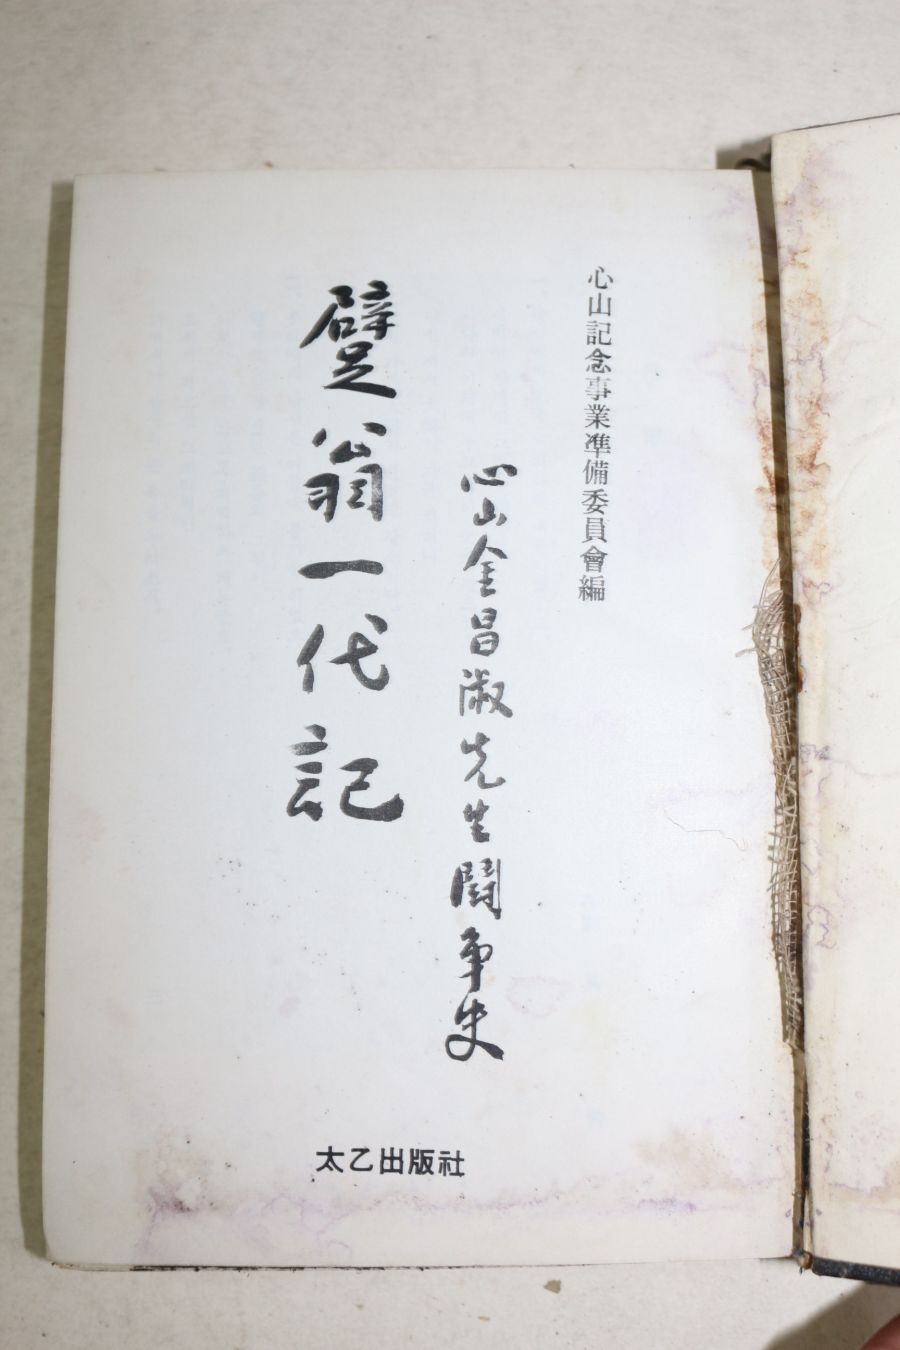 心山記念事業準備委員會編
心山金昌淑先生鬪争史
躄翁一代記
太乙出版社